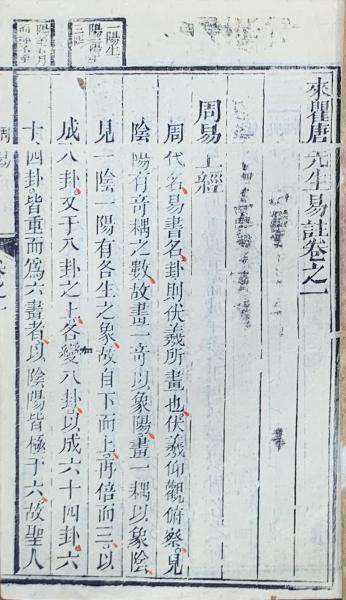 一陽生
來瞿唐先生易註卷之一
周易上經
周代名易書名卦則伏羲所畫也伏羲仰觀俯察見
陰陽有奇耦之數故畫一奇以象陽畫一耦以象陰
見一陰一陽有各生之象故自下而上再倍而三以
成八卦又于八卦之上各變八卦以成六十四卦六
十四卦皆重而爲六畫者以陰陽皆極于六故聖人
周易